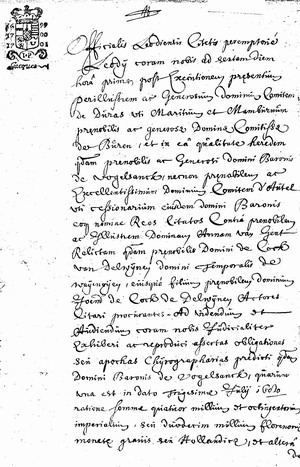 Officialis Leodiensis Citetis peremptorie
Leodij coram nobis ad septem diem
horâ primâ post Executionem presentium
Perillustrem ac Generosum dominum Comitem
de Duras uti Maritum et Mamburnum
prenobilis ac generosæ Dominæ Comitissæ
de Büren et in eâ qualitate heredem
qdam prenobilis ac Generosi domini Baronis
de Vogelsanck, necnon prenobilem ac
Excellentissimum Dominum Comitem d'
uti cessionarium eiusdem domini Baronis
eoq nomine Reos Citatos Contra prenobilem
ac Illustrem Dominam Annam van Gent
Relictam qdam prenobilis Domini de Cock
van Delwijnen domini Temporalis de
eiusque filium prenobilem dominum
de Cock de Delwijnen Actores
Citari procurantes. Ad videndum et
Audiendum coram nobis Iudicialiter
Exhiberi ac reproduci assertas obligationes
seu apochas Chijrographarias predicti qdam
Domini Baronis de Vogelsanck, quarum
una est in dato trigesimæ Iulij
ratione sommæ quatuor millium et octingentorum
imperialium, seu duodecim millium florenorum
monetæ gravis seu Hollandiæ, et altera
de